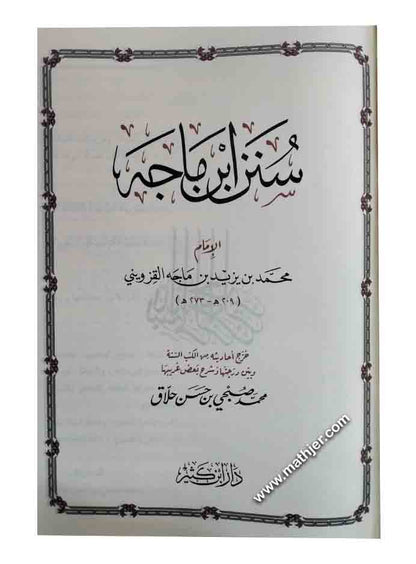 سُنَن ابْن مَاجَه
الإِمَام
محمّد بن يزيد بن ماجه القزويني
(٢٠٩هـ - ٢٧٣هـ)
خرّج أحاديثه من الكتب الستة
وبيّن درجتها وشرح بعض غريبها
محمد صبحي بن حسن حلاق
دار ابن كثير
www.mathjer.com